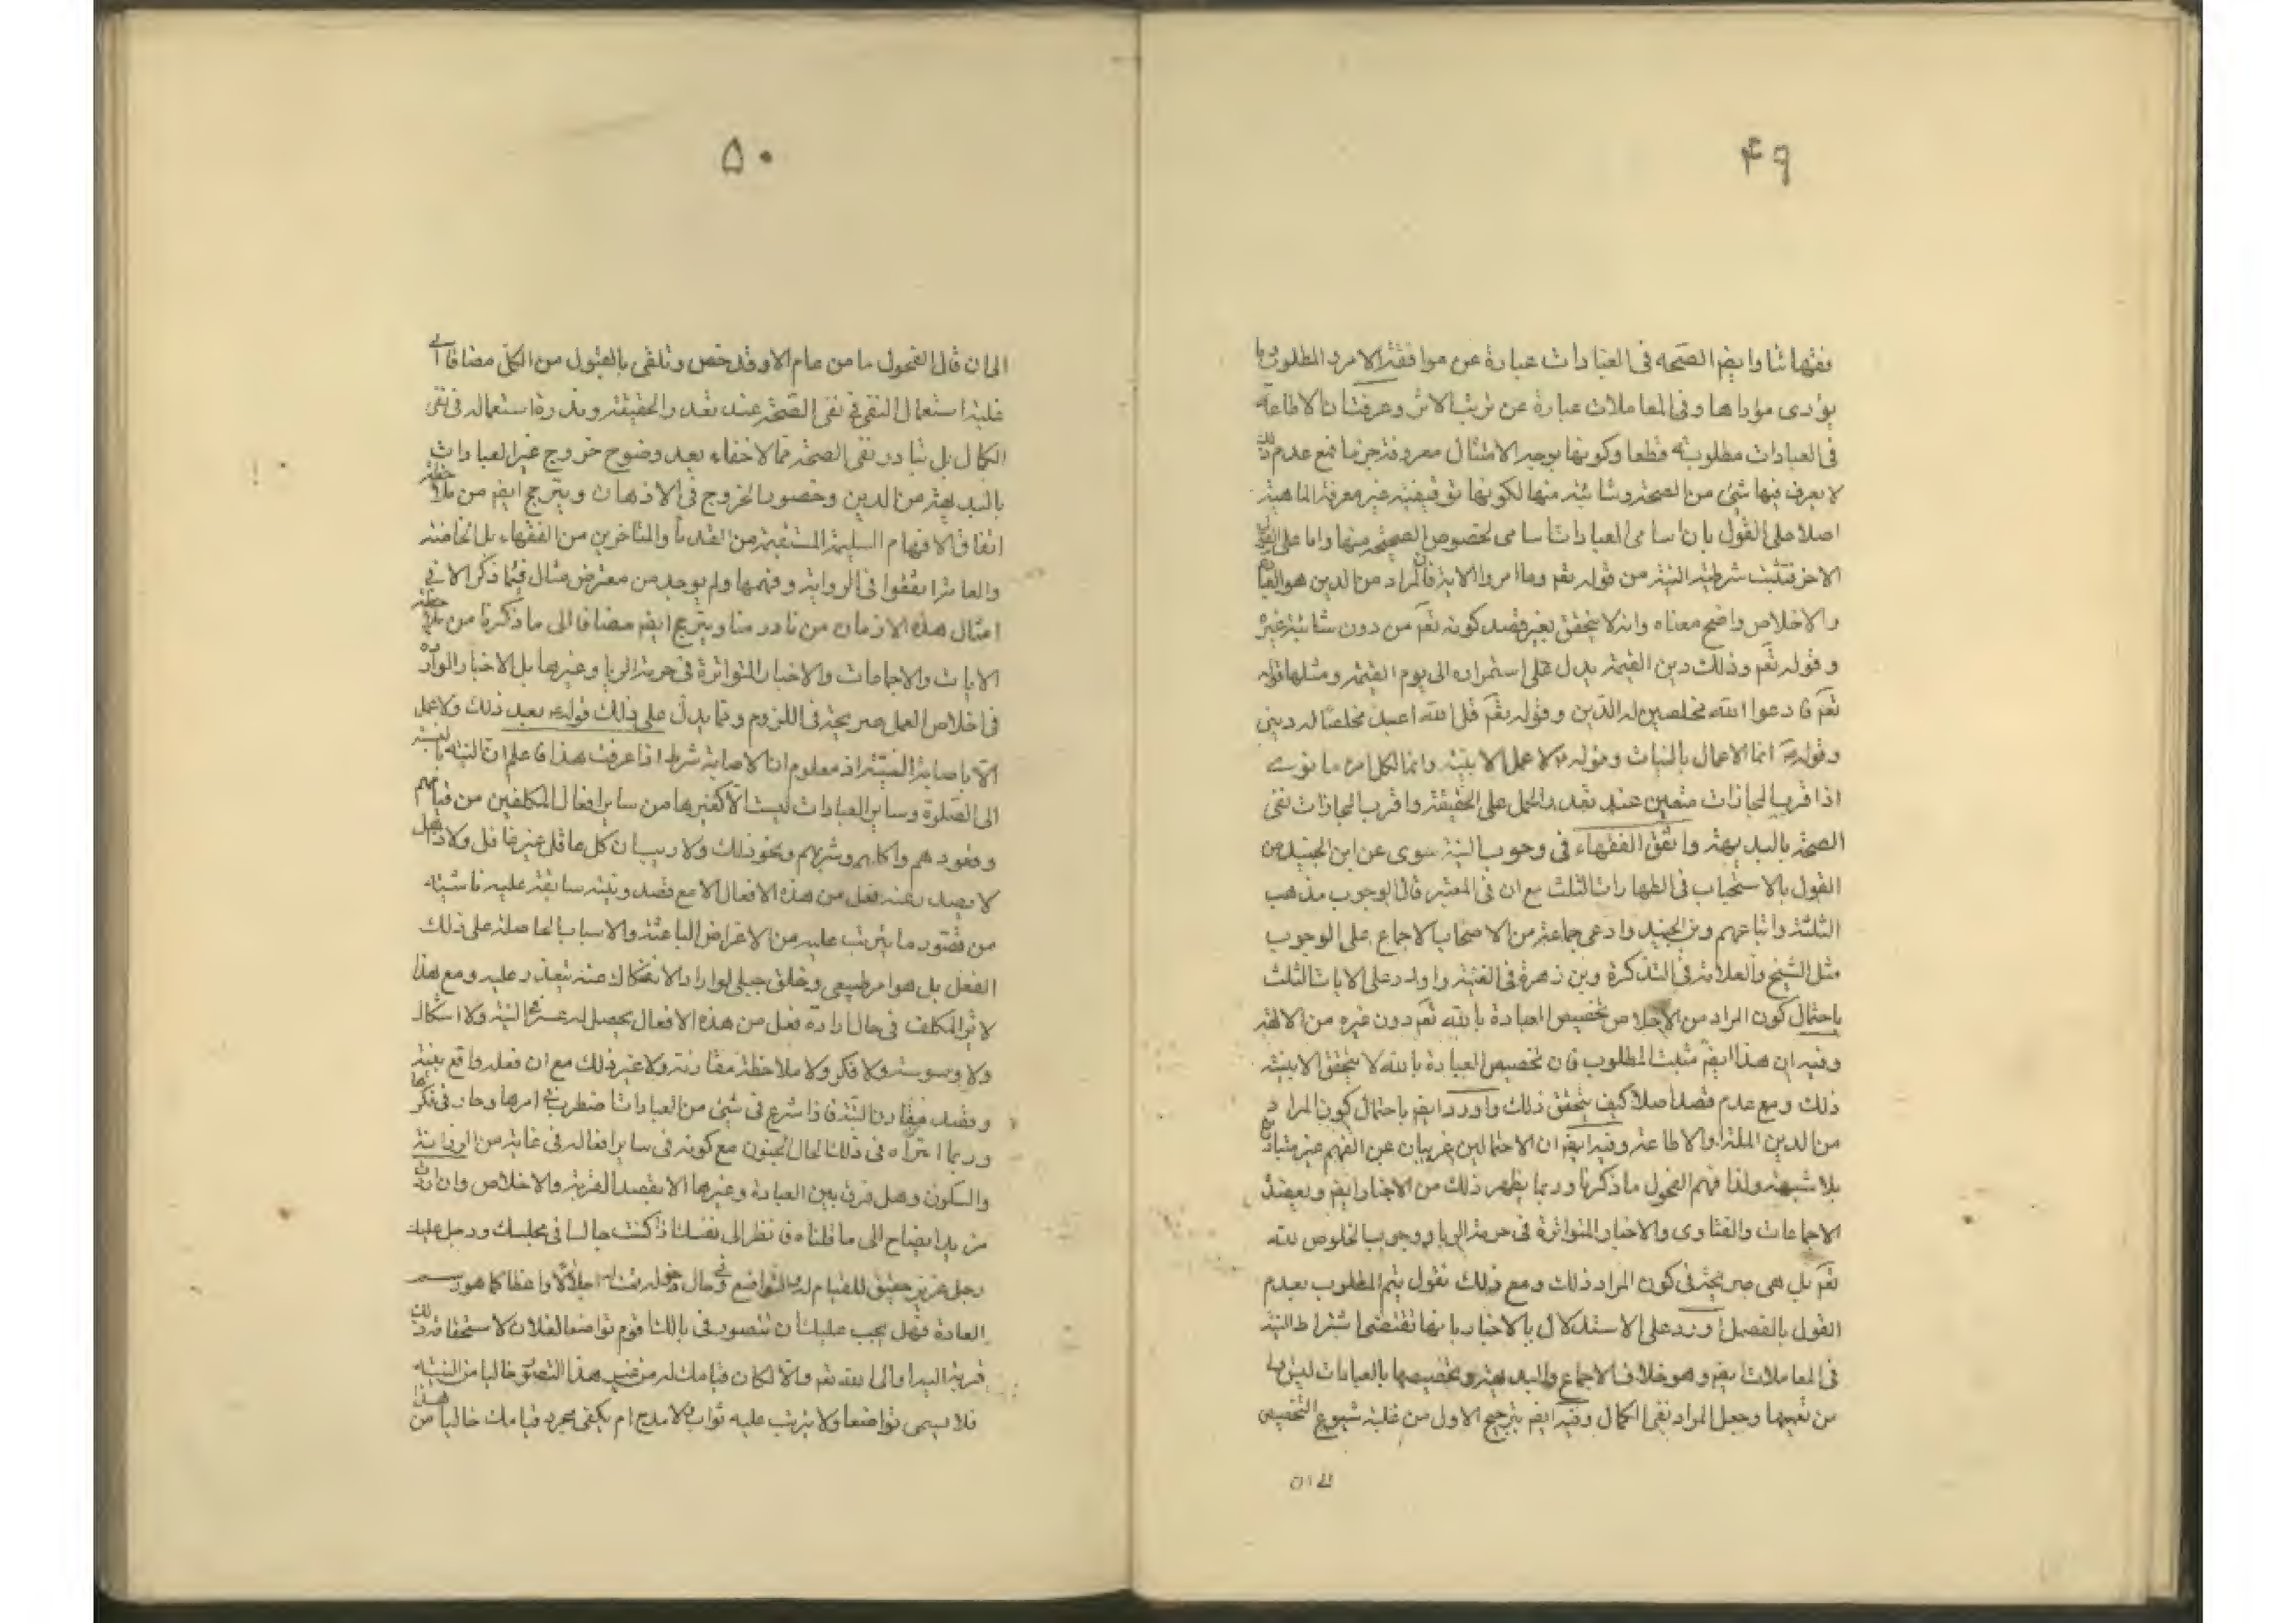 ۴۹
فقهائنا وايضم الصحه فى العبادات عبارة عن موافقة الامر و المطلوب
يؤدى مؤداها وفى المعاملات عبارة عن ترتب الاثر وعرفت ان الاطاعة
فى العبادات مطلوبة قطعا وكونها بوجه الامتثال معروفة فمع عدم ذلك
لا يعرف فيها شئ من الصحة وشائبة منها لكونها توقيفية غير معرفة الماهية
اصلا على القول بان اسامى العبادات اسامى لخصوص الصحيحة منها واما على القول
الاخر فتثبت شرطية النية من قوله تعم وما امروا الاية فان المراد من الدين هو
والاخلاص واضح معناه وانه لا يتحقق بغير قصد كونه تعم من دون شائبة غيره
وقوله تعم وذلك دين القيمة يدل على استمراره الى يوم القيمة ومثلها قوله
تعم فادعوا الله مخلصين له الدين وقوله تعم قل الله اعبد مخلصا له دينى
وقوله ص انما الاعمال بالنيات وقوله لا عمل الا بنية وانما لكل امرء ما نوى
اذ اقرب المجازات متعين عند تعذر الحمل على الحقيقة واقرب المجازات نفى
الصحة بالبديهة واتفق الفقهاء فى وجوب النية سوى عن ابن الجنيد من
القول بالاستحباب فى الطهارات الثلث مع ان فى المعتبر قال الوجوب مذهب
الثلثة واتباعهم وبن الجنيد وادعى جماعة من الاصحاب الاجماع على الوجوب
مثل الشيخ والعلامة فى التذكرة وبن زهرة فى الغنية واورد على الايات الثلث
باحتمال كون المراد من الاخلاص تخصيص العبادة بالله تعم دون غيره من الالهة
وفيه ان هذا ايضم مثبت المطلوب فان تخصيص العبادة بالله لا يتحقق الا بنية
ذلك ومع عدم قصد اصلا كيف يتحقق ذلك واورد ايضم باحتمال كون المراد
من الدين الملة والاطاعة وفيه ايضم ان الاحتمالين غريبان عن الفهم غير متبادر
بلا شبهة ولذا فهم الفحول ما ذكرنا وربما يظهر ذلك من الاخبار ايضم ويعضد
الاجماعات والفتاوى والاخبار المتواترة فى حرمة الريا ووجوب الخلوص لله
تعم بل هى صريحة فى كون المراد ذلك ومع ذلك نقول يتم المطلوب بعدم
القول بالفصل اورد على الاستدلال بالاخبار بانها تقتضى اشتراط النية
فى المعاملات ايضم وهو خلاف الاجماع والبديهة وتخصيصها بالعبادات ليس
من تعميمها وجعل المراد نفى الكمال وفيه ايضم يترجح الاول من غلبة شيوع التخصيص
الى ان
۵۰
الى ان قال الفحول ما من عام الا وقد خص وتلقى بالقبول من الكل مضافا الى
غلبة استعمال النفى فى نفى الصحة عند تعذر الحقيقة وندرة استعماله فى نفى
الكمال بل تبادر نفى الصحة مما لا خفاء بعد وضوح خروج غير العبادات
بالبديهة من الدين وحضور الخروج فى الاذهان ويترجح ايضم من ملاحظة
اتفاق الافهام السليمة المستقيمة من القدماء والمتاخرين من الفقهاء بل الخاصة
والعامة اتفقوا فى الرواية وفهمها ولم يوجد من معترض مثال فيما ذكر الا فى
امثال هذه الازمان من نادر منا ويترجح ايضم مضافا الى ما ذكرنا من ملاحظة
الايات والاجماعات والاخبار المتواترة فى حرمة الريا وغيرها بل الاخبار الواردة
فى اخلاص العمل صريحة فى اللزوم ومما يدل على ذلك قوله بعد ذلك ولا عمل
الا باصابة السنة اذ معلوم ان الاصابة شرط اذا عرفت هذا فاعلم ان النية بالنسبة
الى الصلوة وساير العبادات ليست الا كغيرها من ساير افعال المكلفين من قيامهم
وقعودهم واكلهم وشربهم ونحو ذلك ولا ريب ان كل عاقل غير غافل ولا ذاهل
لا يصدر عنه فعل من هذه الافعال الا مع قصد ونية سابقة عليه ناشئة
من تصور ما يترتب عليه من الاغراض الباعثة والاسباب الحاصلة على ذلك
الفعل بل هو امر طبيعى وخلق جبلى لو اراد الانفكاك عنه تعذر عليه ومع هذا
لا ترى المكلف فى حال ارادة فعل من هذه الافعال يحصل له عسر فى النية ولا اشكال
ولا وسوسة ولا فكر ولا ملاحظة مقارنة ولا غير ذلك مع ان فعله واقع بنية
وقصد مقارن البتة فاذا شرع فى شئ من العبادات اضطرب فى امرها وحار فى فكرها
وربما اعتراه فى ذلك الحال الجنون مع كونه فى ساير افعاله فى غاية من الرزانة
والسكون وهل فرق بين العبادة وغيرها الا بقصد القربة والاخلاص وان اردت
مزيد ايضاح الى ما قلناه فانظر الى نفسك اذا كنت جالسا فى مجلسك ودخل عليك
رجل عزيز حقيق للقيام له والتواضع فى حال دخوله فقمت له اجلالا واعظاما كما هو رسم
العادة فهل يجب عليك ان تتصور فى بالك اقوم تواضعا لفلان لاستحقاقه ذلك
قربة اليه او الى الله تعم والا لكان قيامك له من غير هذا التصور خاليا من النية
فلا يسمى تواضعا ولا يترتب عليه ثواب ولا مدح ام يكفى مجرد قيامك خاليا من هذا